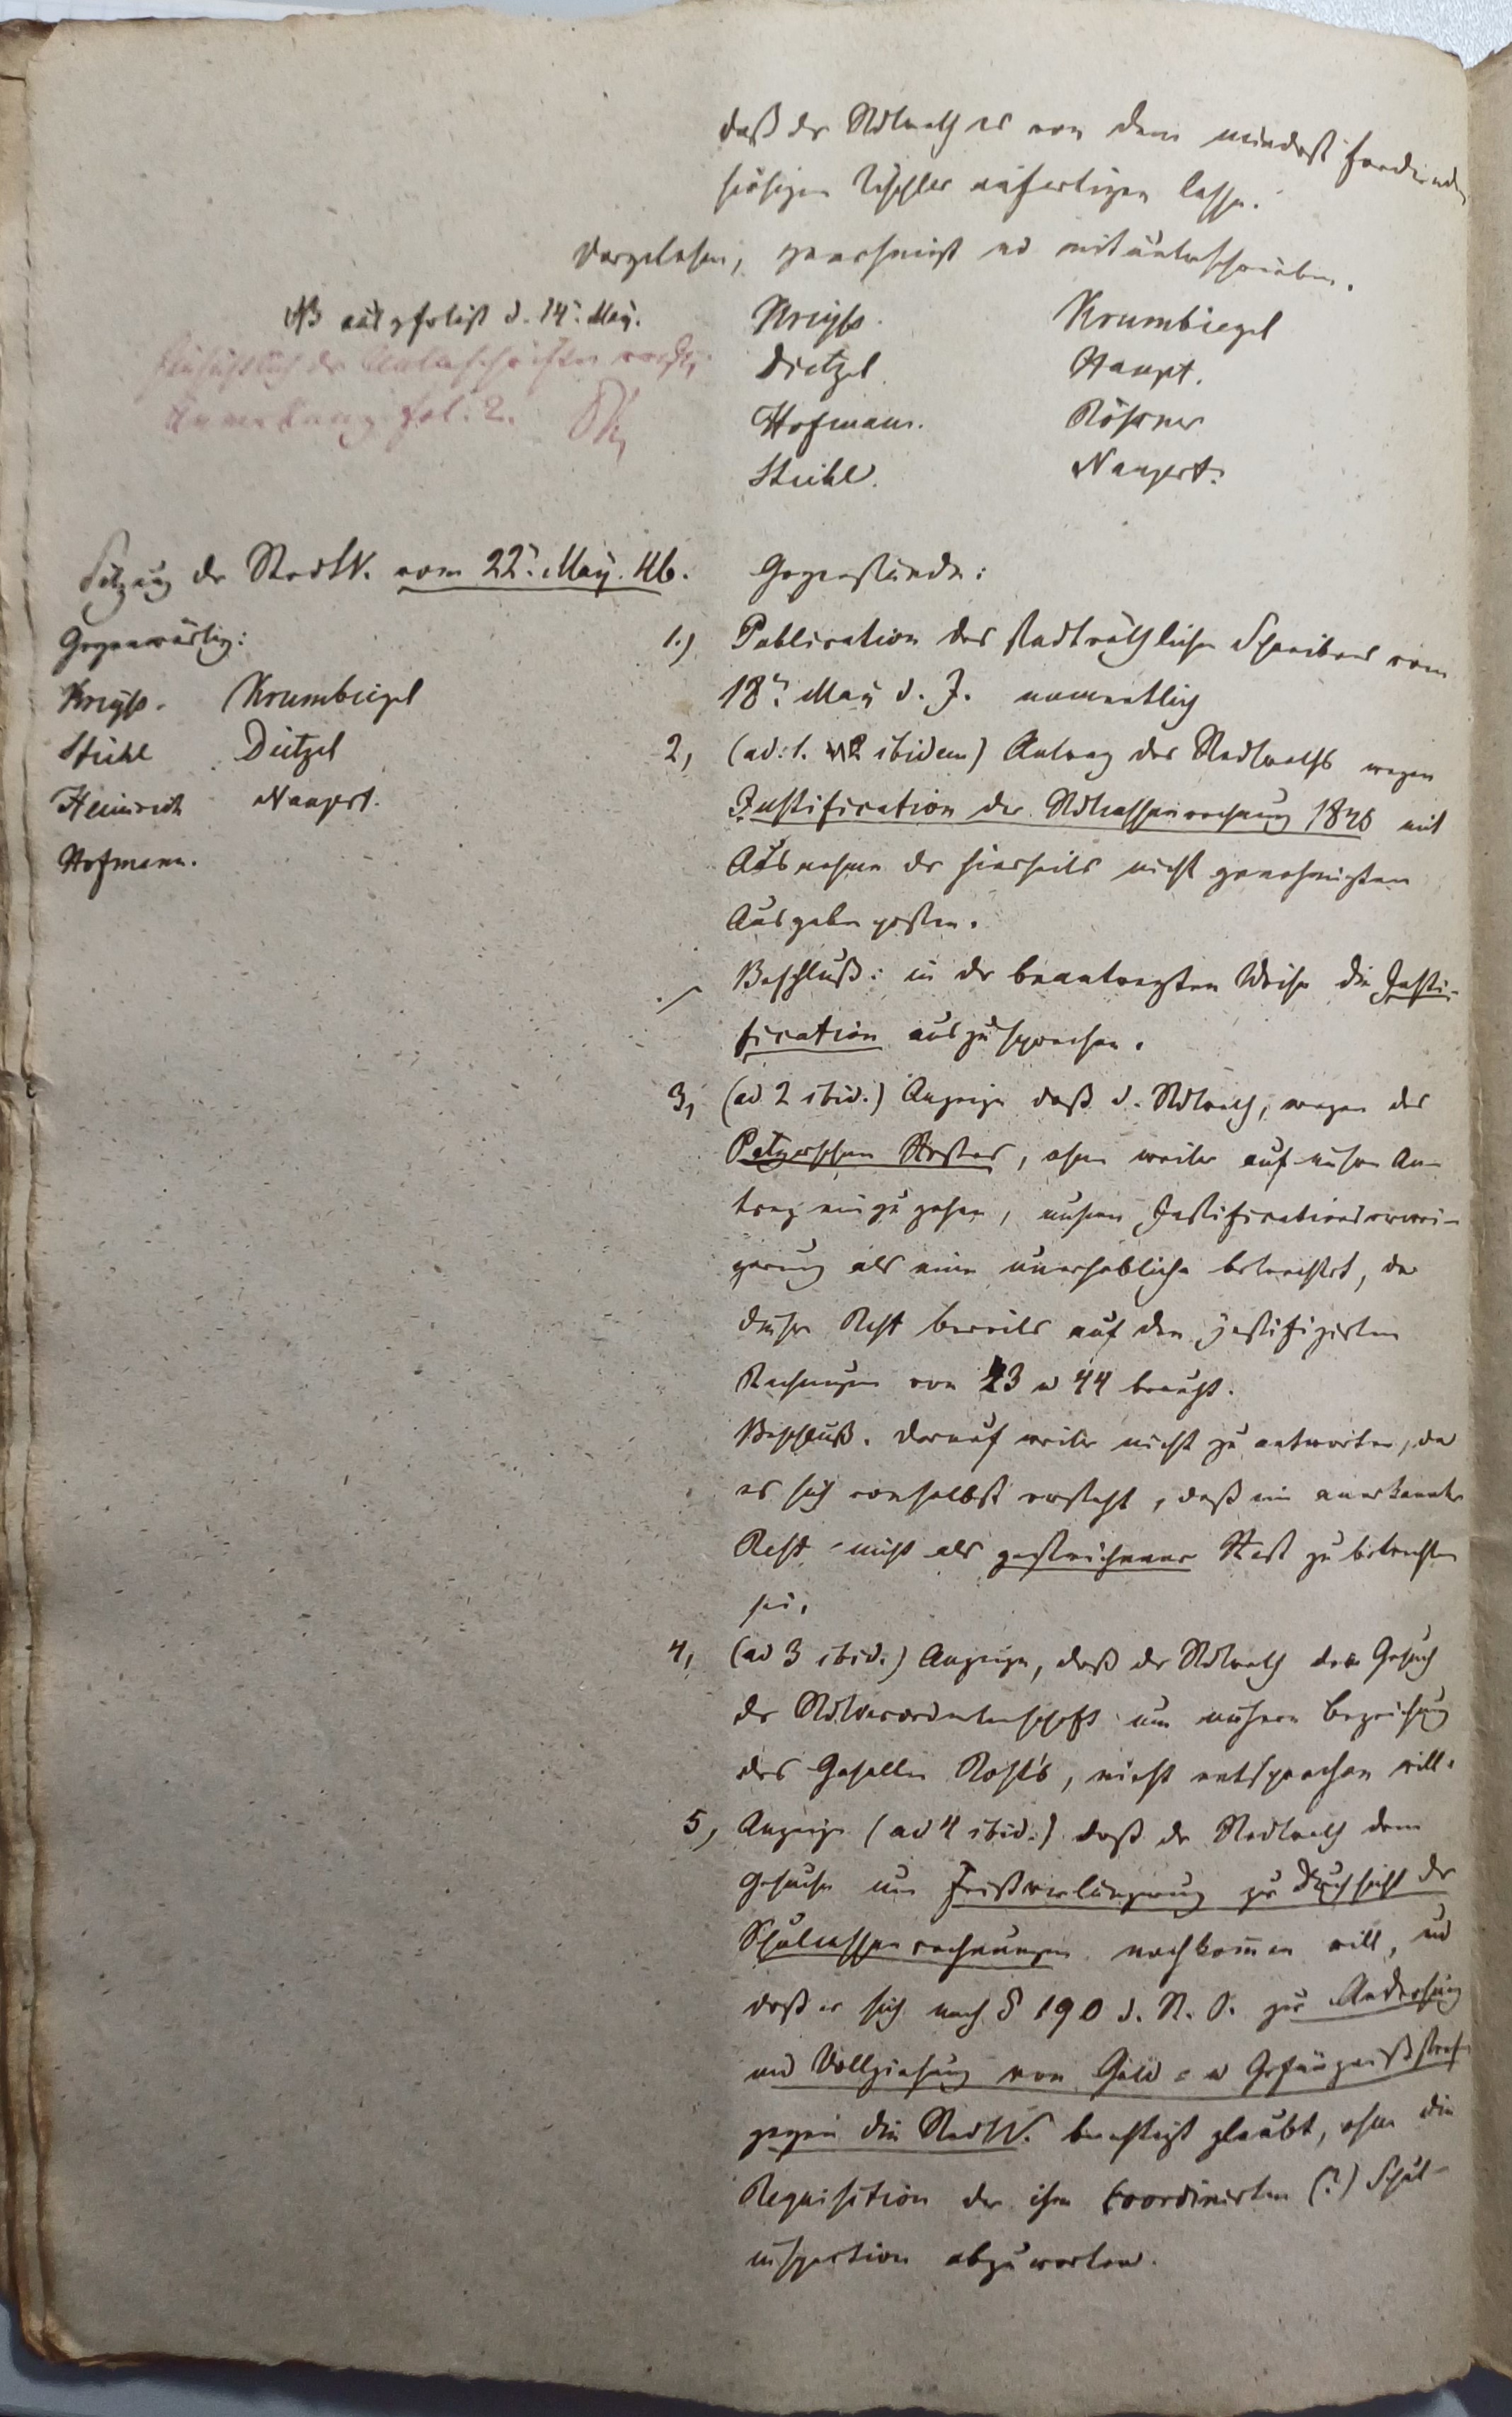 daß der Stdtrath es von dem mindest fordernden
hiesigen Tischler anfertigen lasse.
Vorgelesen, genehmigt und mitunterschrieben.
NB ausgefertigt d. 14. May.
hinsichtlich der Unterschriften
Anmerkung fol. 2.
Kreyß. Krumbiegel
Dietzel. Haupt.
Hofmann. Rößner
Stiehl. Naupert.
Sitzung der StadtV. vom 22. May. 46.
Gegenwärtig:
Kreyß. Krumbiegel
Stiehl Dietzel
Heinrich Naupert.
Hofmann.
Gegenstände:
1.) Publication des stadträthlichen Schreibens vom
18. May d. J. namentlich
2, (ad. 1. ibidem) Antrag des Stadtraths wegen
Justification der Stdtcassenrechnung 1845 mit
Ausnahme der hierseits nicht genehmigten
Ausgabeposten.
./. Beschluß: in der beantragten Weise die Justi-
fication auszusprechen.
3, (ad 2 ibid.) Anzeige daß d. Stdtrath, wegen des
Restes, ohne weiter auf unsern An-
trag einzugehen, unsere Justificationsverwei-
gerung als eine unerhebliche betrachtet, da
dieser Rest bereits auf den justifizirten
Rechnungen von 43 u 44 beruht.
Beschluß. darauf weiter nicht zu antworten, da
es sich von selbst versteht, daß ein anerkannter
Rest nicht als gestrichener Rest zu betrachten
sei.
4, (ad 3 ibid.) Anzeige, daß der Stdtrath dem Gesuch
der Stdtverordnetenschaft um nähere Bezeichnung
des Gesellen Rost's, nicht entsprechen will.
5, Anzeige (ad 4 ibid.) daß der Stadtrath dem
Gesuche um Fristverlängerung zur Durchsicht der
Schulcassenrechnungen nachkommen will, und
daß er sich nach § 190 d. St. O. zur Androhung
und Vollziehung von Geld- u Gefängnißstrafen
gegen die StadtV. berechtigt glaubt, ohne die
Requisition der ihm coordinirten (?) Schul-
inspection abzuwarten.